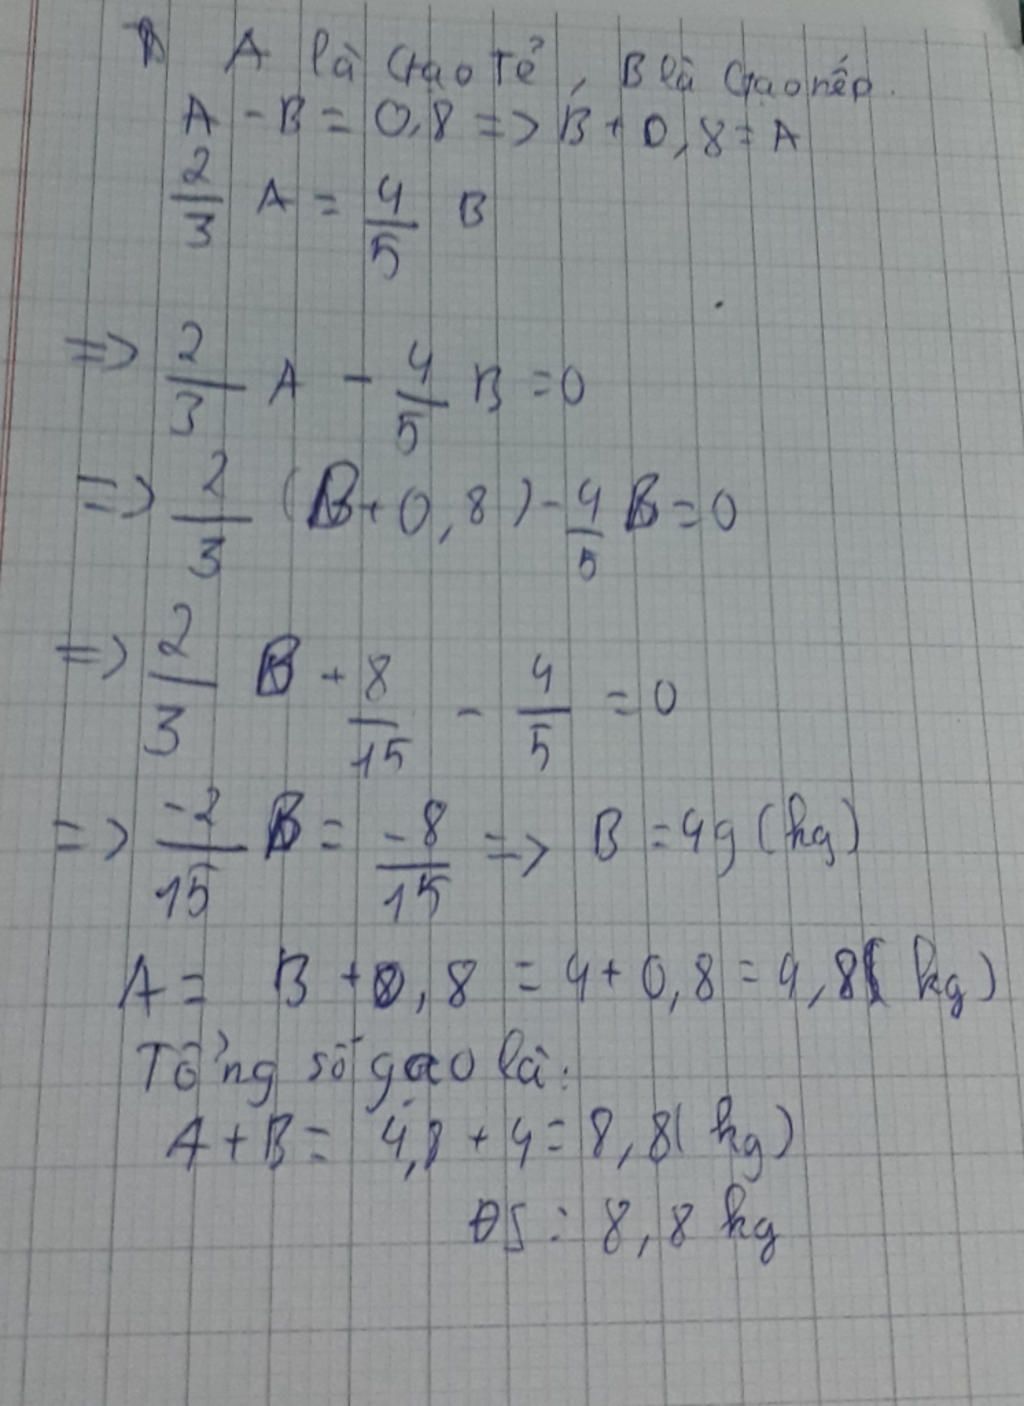 A là Gạo Tẻ, B là Gạo nếp.
A - B = 0,8 => B + 0,8 = A
2/3 A = 4/5 B
=> 2/3 A - 4/5 B = 0
=> 2/3 (B + 0,8) - 4/5 B = 0
=> 2/3 B + 8/15 - 4/5 = 0
=> -2/15 B = -8/15 => B = 4g (kg)
A = B + 0,8 = 4 + 0,8 = 4,8 (kg)
Tổng số gạo là:
A + B = 4,8 + 4 = 8,8 (kg)
ĐS: 8,8 kg